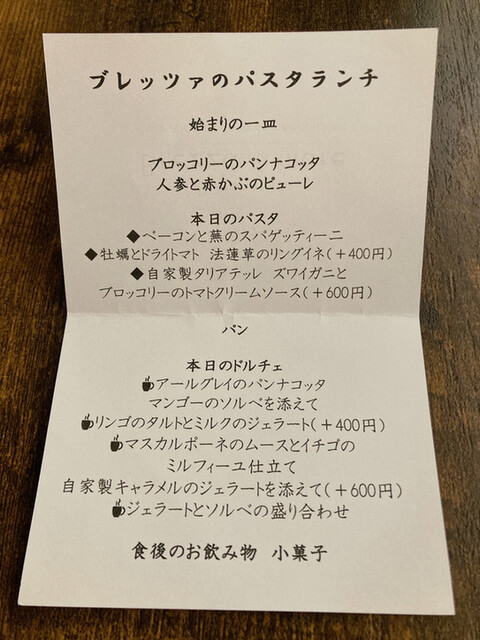 ブレッツァのパスタランチ
始まりの一皿
ブロッコリーのパンナコッタ
人参と赤かぶのピューレ
本日のパスタ
◆ベーコンと蕪のスパゲッティーニ
◆牡蠣とドライトマト 法蓮草のリングイネ(+400円)
◆自家製タリアテッレ ズワイガニと
ブロッコリーのトマトクリームソース(+600円)
パン
本日のドルチェ
アールグレイのパンナコッタ
マンゴーのソルベを添えて
リンゴのタルトとミルクのジェラート(+400円)
マスカルポーネのムースとイチゴの
ミルフィーユ仕立て
自家製キャラメルのジェラートを添えて(+600円)
ジェラートとソルベの盛り合わせ
食後のお飲み物 小菓子